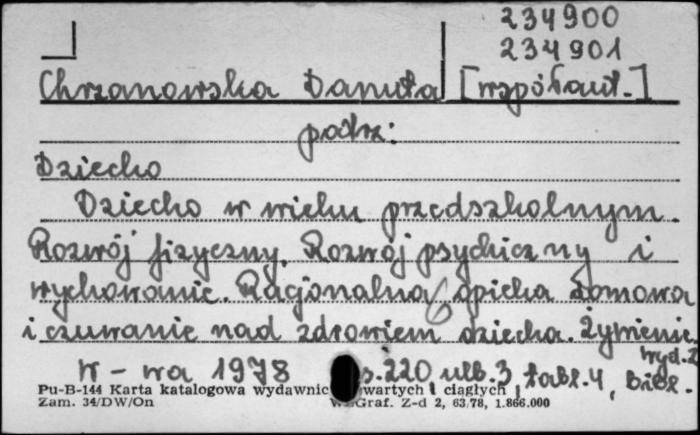 234900
234901
Chrzanowska Danuta [współaut.]
patrz:
Dziecko
Dziecko w wieku przedszkolnym.
Rozwój fizyczny. Rozwój psychiczny i
wychowanie. Racjonalna opieka domowa
i czuwanie nad zdrowiem dziecka. Żywienie.
wyd. 2
W-wa 1978 s. 220 nlb. 3 tabl. 4, Bibl.
Pu-B-144 Karta katalogowa wydawnic wartych i ciągłych
Zam. 34/DW/On Graf. Z-d 2, 63,78, 1.866.000